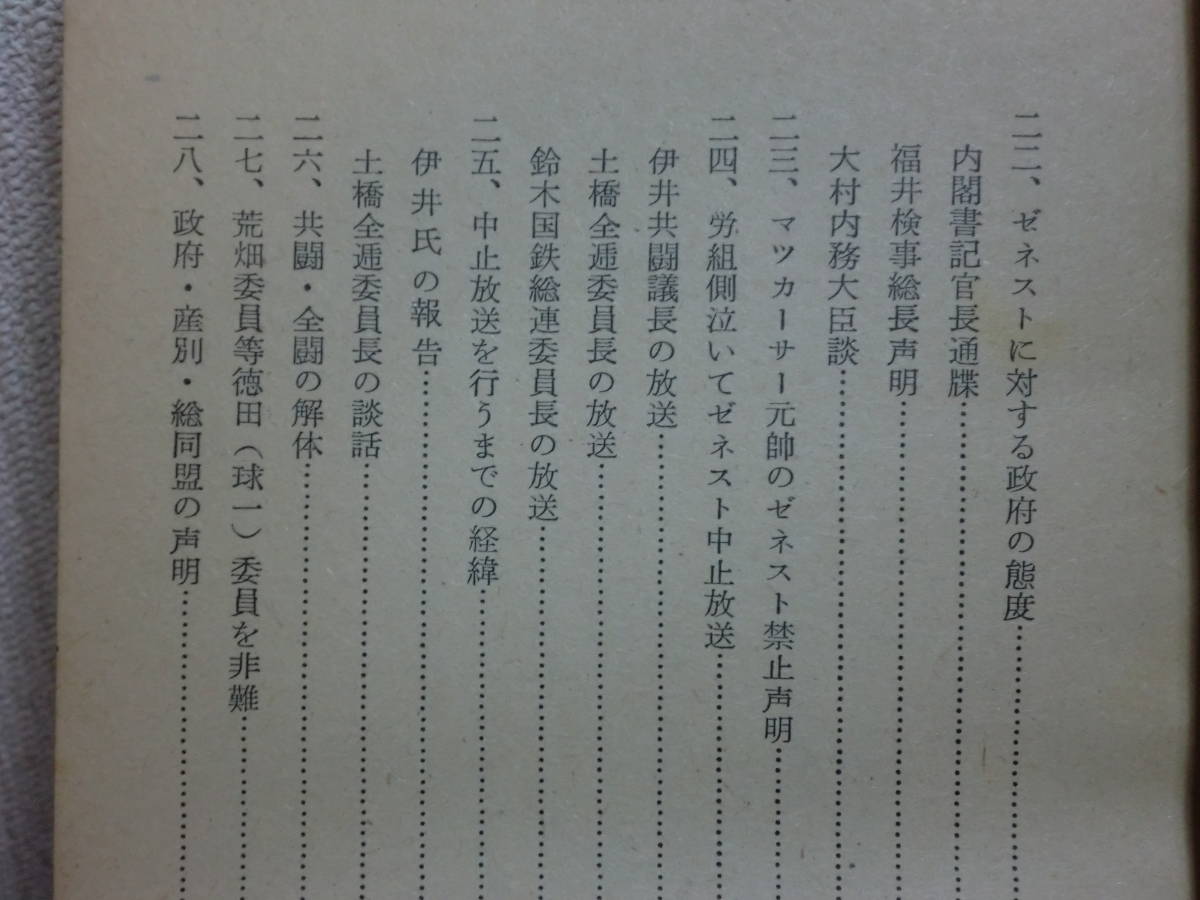 二二、ゼネストに対する政府の態度……………………
内閣書記官長通牒……………………
福井検事総長声明……………………
大村内務大臣談……………………
二三、マツカーサー元帥のゼネスト禁止声明……………………
二四、労組側泣いてゼネスト中止放送……………………
伊井共闘議長の放送……………………
土橋全逓委員長の放送……………………
鈴木国鉄総連委員長の放送……………………
二五、中止放送を行うまでの経緯……………………
伊井氏の報告……………………
土橋全逓委員長の談話……………………
二六、共闘・全闘の解体……………………
二七、荒畑委員等徳田（球一）委員を非難……………………
二八、政府・産別・総同盟の声明……………………